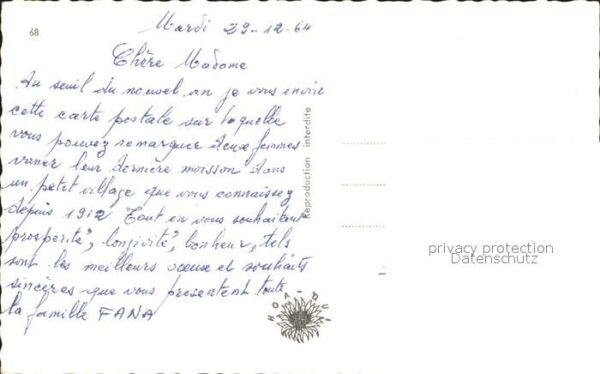 68
Mardi 29-12-64
Chère Madame
Au seuil du nouvel an je vous envoie
cette carte postale sur laquelle
vous pouvez remarquer deux femmes
vaner leur dernière moisson dans
un petit village que vous connaissez
depuis 1912 Tout en vous souhaitant
prosperité", longivité", bonheur, tels
sont les meilleurs voeux et souhaits
sincères que vous présentent toute
la famille FANA
Reproduction interdite
HOA-QUI
privacy protection
Datenschutz